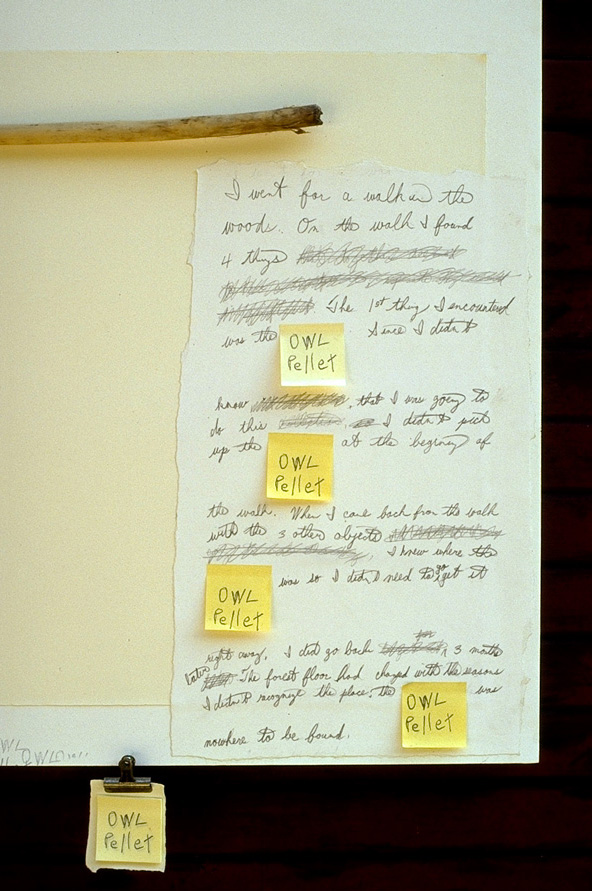 I went for a walk in the
woods. On the walk I found
4 things
The 1st thing I encountered
was the OWL Pellet. Since I didn't
know that I was going to
do this I didn't pick
up the OWL Pellet at the begining of
the walk. When I came back from the walk
with the 3 other objects
I knew where the
OWL Pellet was so I didn't need to go get it
right away. I did go back 3 months
later The forest floor had changed with the seasons
I didn't recognize the place, the OWL Pellet was
nowhere to be found.
OWL
Pellet